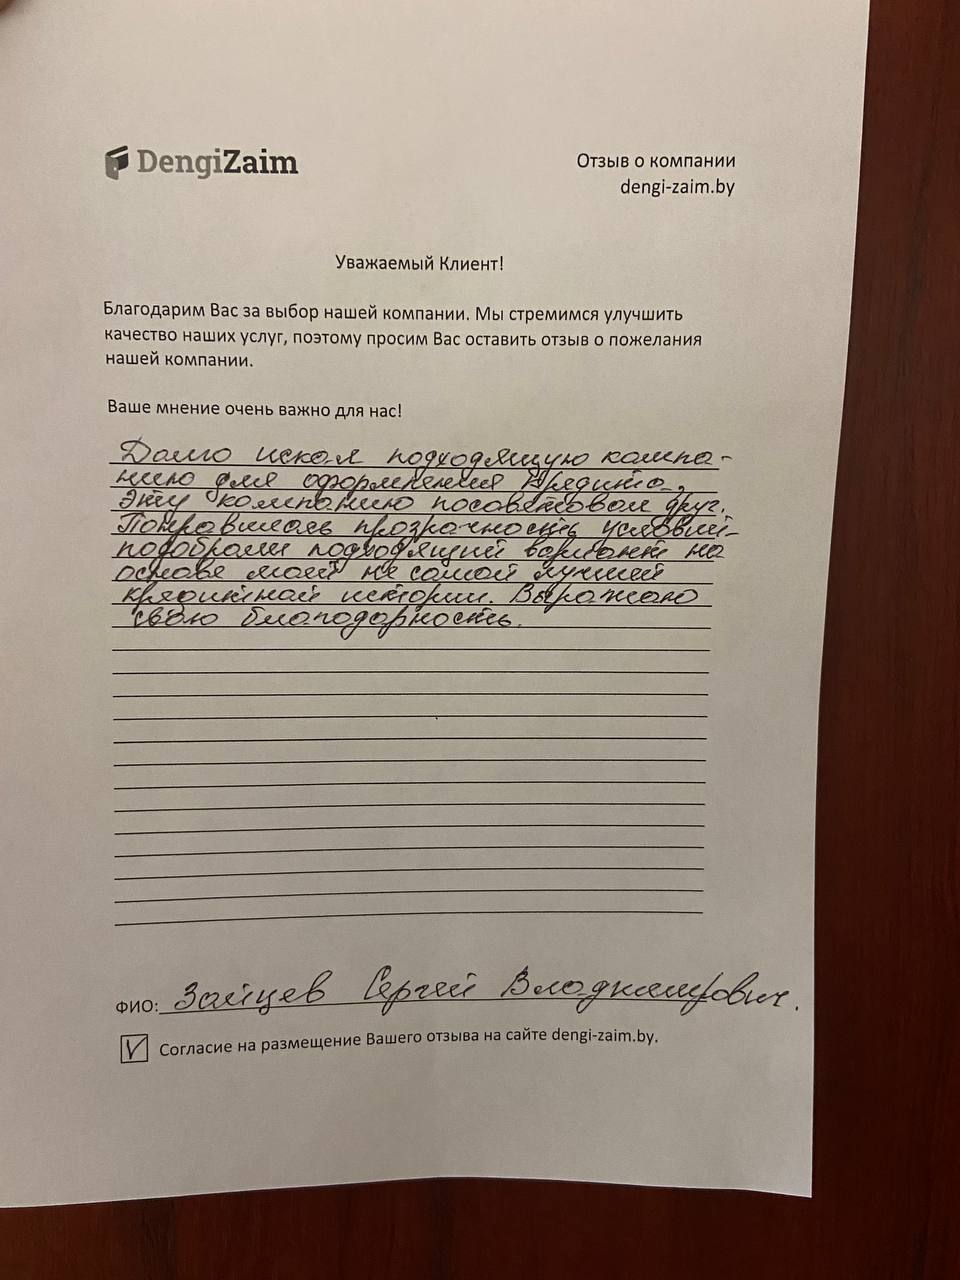 DengiZaim
Отзыв о компании
dengi-zaim.by
Уважаемый Клиент!
Благодарим Вас за выбор нашей компании. Мы стремимся улучшить
качество наших услуг, поэтому просим Вас оставить отзыв о пожелания
нашей компании.
Ваше мнение очень важно для нас!
Долго искал подходящую компа-
нию для оформления кредита,
Эту компанию посоветовал друг.
Понравилась прозрачность условий-
подобрали подходящий вариант на
основе моей не самой лучшей
кредитной истории. Выражаю
свою благодарность.
ФИО: Зайцев Сергей Владимирович.
Согласие на размещение Вашего отзыва на сайте dengi-zaim.by.